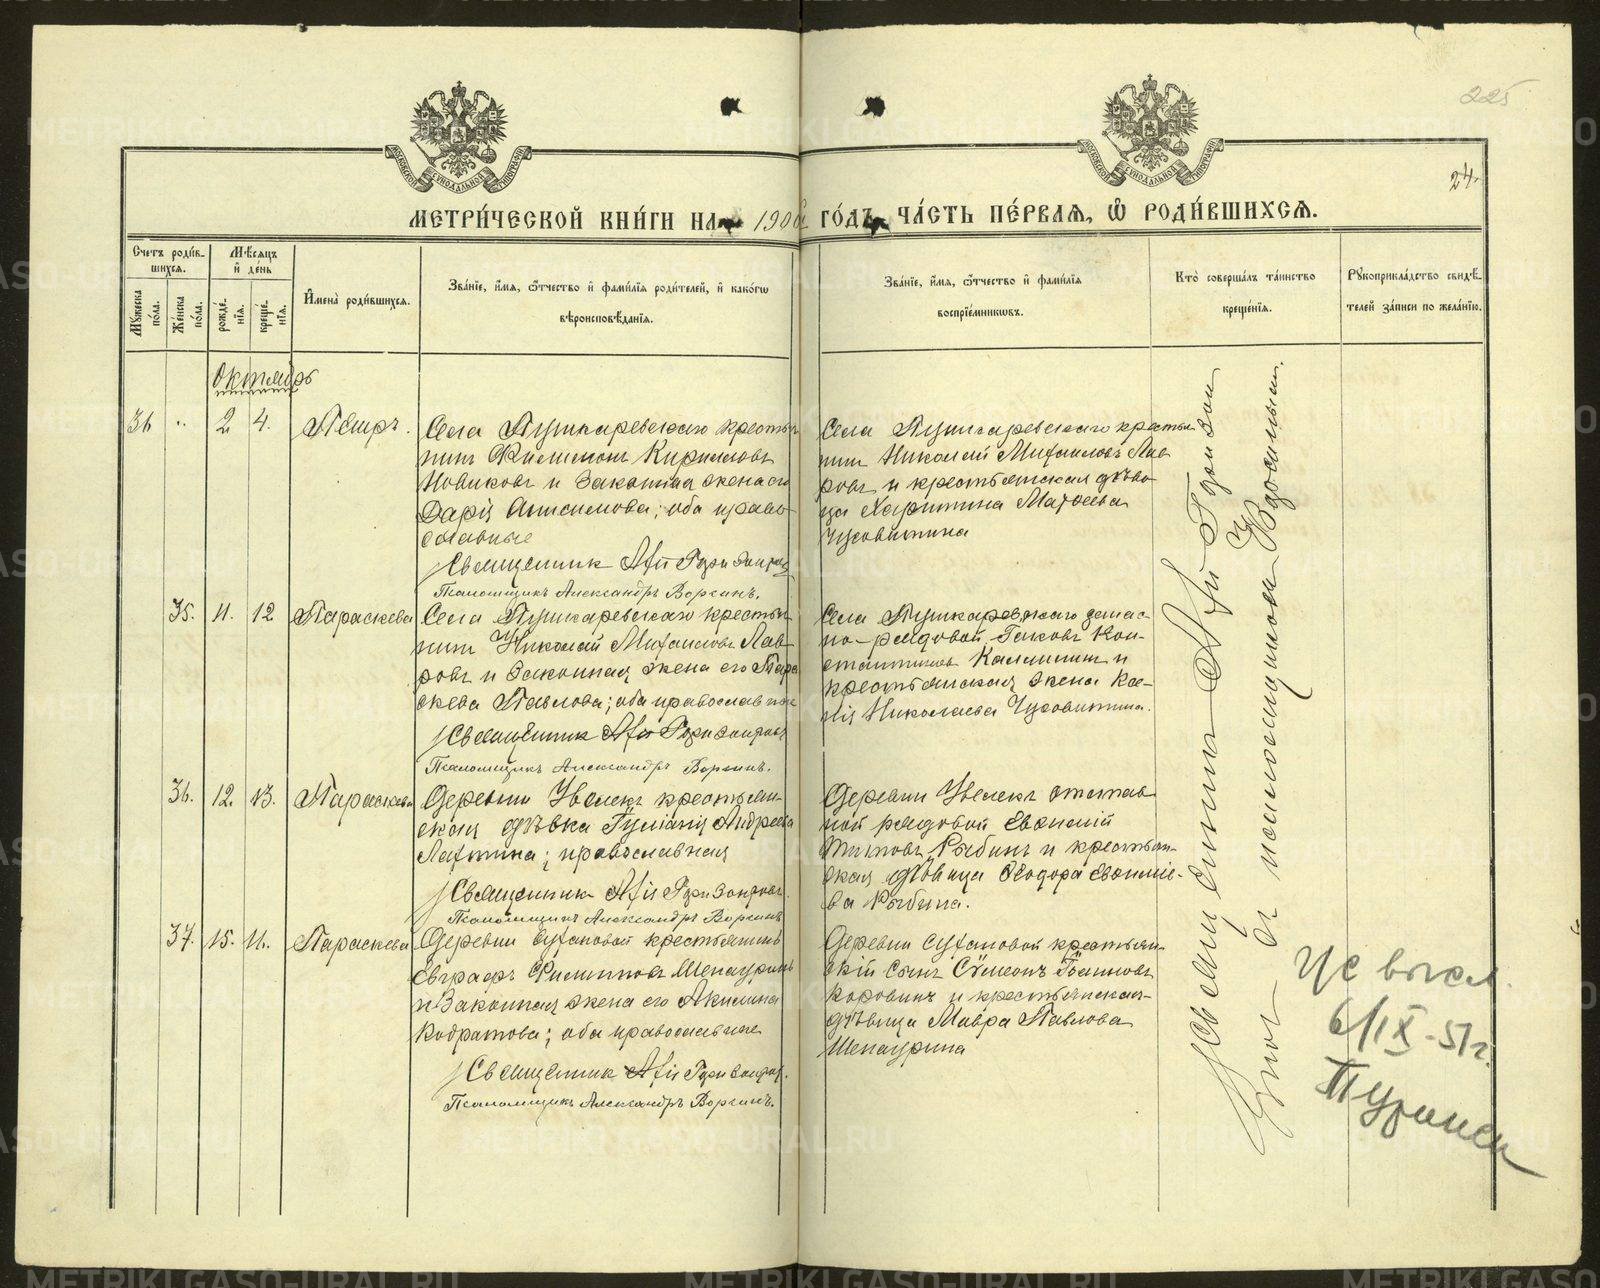 225
24.
МОСКОВСКОЙ СУНОДАЛЬНОЙ ТИПОГРАФІИ
МОСКОВСКОЙ СУНОДАЛЬНОЙ ТИПОГРАФІИ
МЕТРИ́ЧЕСКОЙ КНИ́ГИ НА 1906 ГО́ДЪ, ЧА́СТЬ ПЕ́РВАЯ, Ѽ РОДИ́ВШИХСЯ.
Счетъ роди́в-
шихся.
Мꙋжеска по́ла.
Же́нска по́ла.
Мѣсяцъ
и҆ де́нь
рожде́-
нїя.
креще́-
нїя.
И҆мена̀ роди́вшихся.
Зва́нїе, и҆́мя, ѻ҆́тчество и҆ фами́лїя роди́телей, и҆ како́гѡ
вѣроисповѣ́данїя.
Зва́нїе, и҆́мя, ѻ҆́тчество и҆ фами́лїя
воспрїе́мникѡвъ.
Кто̀ соверша́лъ та́инство
креще́нїя.
Рꙋкоприкла́дство свидѣ́-
телей за́писи по жела́нїю.
Октябрь
36 " 2 4. Петръ.
Села Пушкаревскаго крестья-
нинъ Филимонъ Кирилловъ
Новиковъ и законная жена его
Дарія Анисимова; оба право-
славные
Священникъ
Псаломщикъ Александръ Воргинъ.
Села Пушкаревскаго крестья-
нинъ Николай Михаиловъ Лав-
ровъ и крестьянская дѣви-
ца Харитина Матѳеева
Чусовитина
35. 11. 12 Параскева
Села Пушкаревскаго крестья-
нинъ Николай Михаиловъ Лав-
ровъ и законная жена его Пара-
скева Павлова; оба православные
Священникъ
Псаломщикъ Александръ Воргинъ.
Села Пушкаревскаго запас-
но-рядовой Іаковъ Кон-
стантиновъ Калининъ и
крестьянская жена Ксе-
нія Николаева Чусовитина.
36. 12. 13. Параскева
Деревни Увелекъ крестьян-
ская дѣвка Іуліанія Андреева
Лаптина; православная
Священникъ
Псаломщикъ Александръ Воргинъ
Деревни Увелекъ отстав-
ной рядовой Евѳимій
Титовъ Рыбинъ и крестьян-
ская дѣвица Ѳеодора Евѳиміе-
ва Рыбина.
37. 15. 16. Параскева
Деревни Сухановой крестьянинъ
Евграфъ Филипповъ Шепауринъ
и законная жена его Акилина
Кодратова; оба православные
Священникъ
Псаломщикъ Александръ Воргинъ.
Деревни Сухановой крестьян-
скій сынъ Сѵмеонъ Іоанновъ
Коровинъ и крестьянская
дѣвица Мавра Павлова
Шепаурина
Священникъ
съ псаломщикомъ
6/IX-51г.